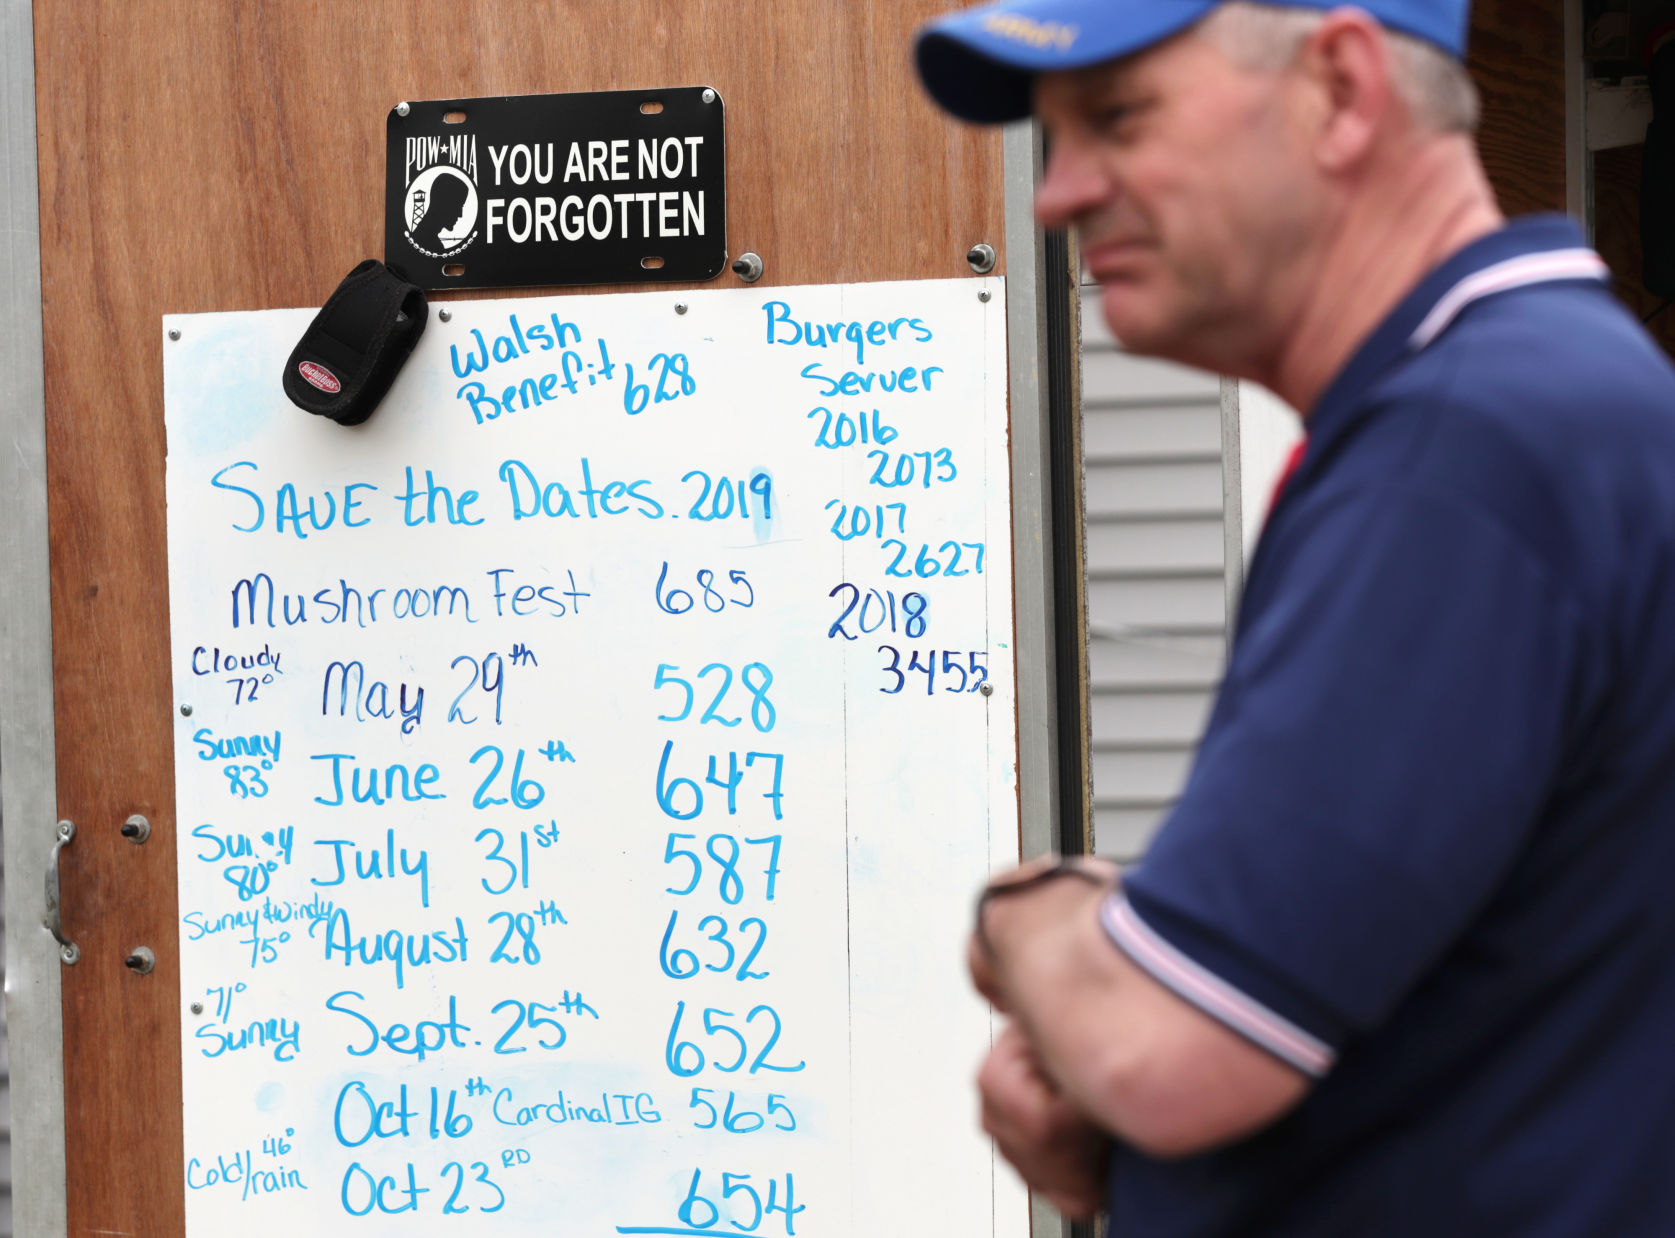 POW★MIA
YOU ARE NOT
FORGOTTEN
Walsh
Benefit 628
Burgers
Server
2016
2073
2017
2627
2018
3455
SAVE the Dates. 2019
Mushroom Fest 685
Cloudy
72°
May 29th 528
Sunny
83°
June 26th 647
Sunny
80°
July 31st 587
Sunny & windy
75°
August 28th 632
71°
Sunny
Sept. 25th 652
Oct 16th Cardinal IG 565
46°
Cold/rain
Oct 23RD 654